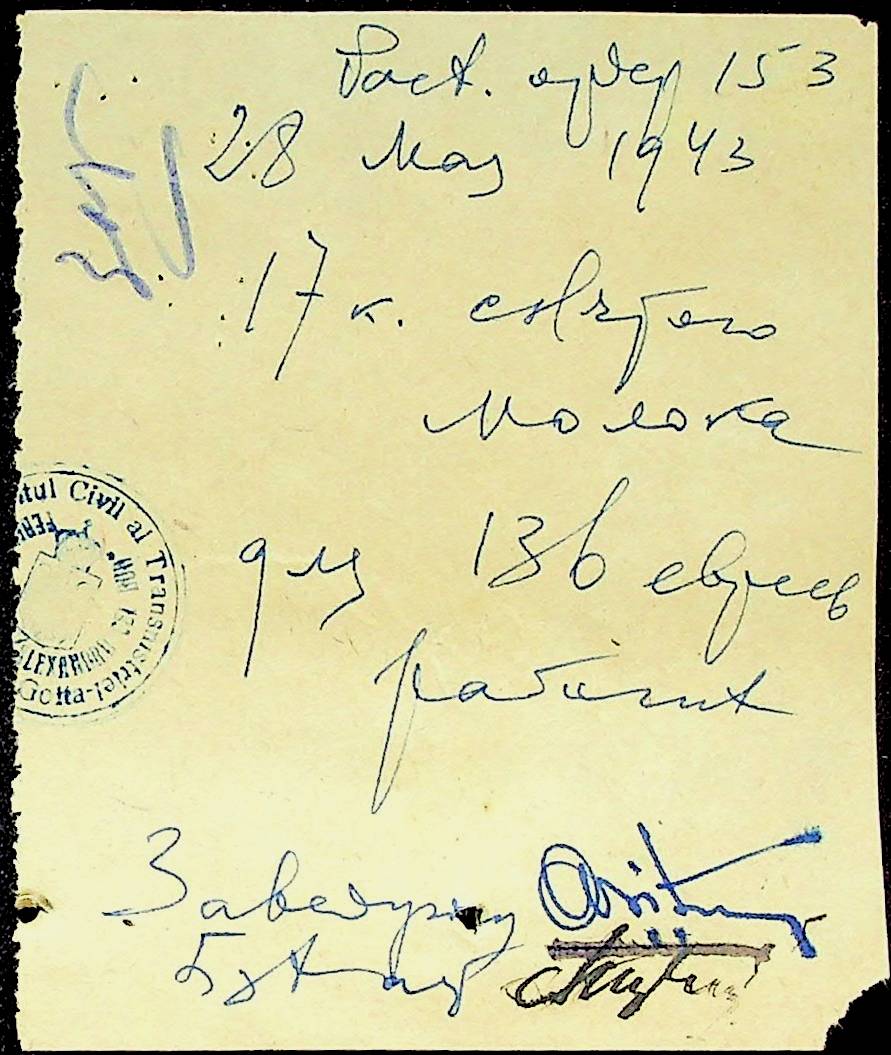 Раст. ордер 153
28 Мая 1943
17 к. снятого
молока
для 136 евреев
работ
Заведующ
Бухгал
tul Civil al Transnistriei
Golta